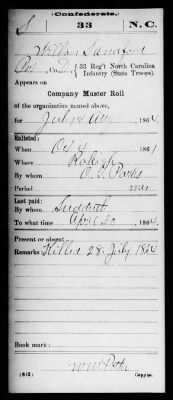 Confederate.
S 33 N.C.
William Sandford
Co. D, 33 Reg't North Carolina
Infantry (State Troops).
Appears on
Company Muster Roll
of the organization named above,
for July & Aug, 1864
Enlisted:
When Oct 4, 1861
Where Raleigh
By whom O. C. Parks
Period war
Last paid:
By whom Sudduth
To what time April 30, 1864
Present or absent
Remarks: Killed 28 July 1864
Book mark:
(642) Copyist.